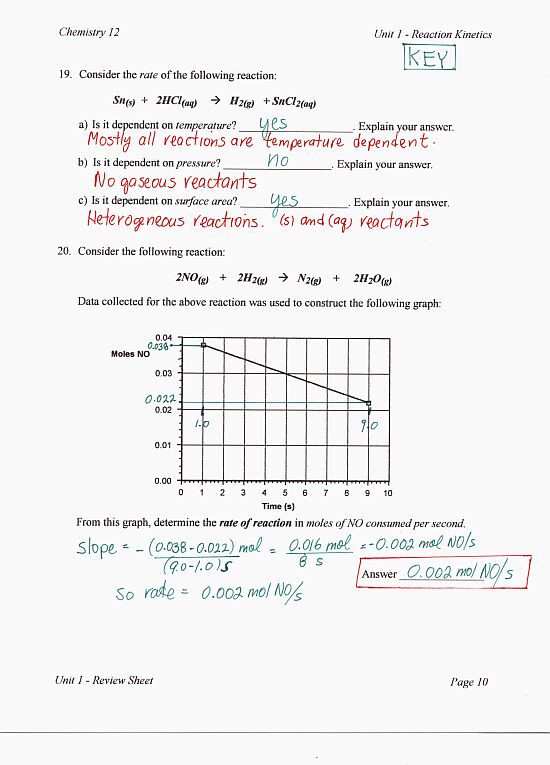 Chemistry 12 Unit 1 - Reaction Kinetics
KEY
19. Consider the rate of the following reaction:
Sn(s) + 2HCl(aq) → H2(g) + SnCl2(aq)
a) Is it dependent on temperature? yes. Explain your answer.
Mostly all reactions are temperature dependent.
b) Is it dependent on pressure? no. Explain your answer.
No gaseous reactants
c) Is it dependent on surface area? yes. Explain your answer.
Heterogeneous reactions. (s) and (aq) reactants
20. Consider the following reaction:
2NO(g) + 2H2(g) → N2(g) + 2H2O(g)
Data collected for the above reaction was used to construct the following graph:
0.04
0.038
Moles NO
0.03
0.022
0.02
1.0 9.0
0.01
0.00
0 1 2 3 4 5 6 7 8 9 10
Time (s)
From this graph, determine the rate of reaction in moles of NO consumed per second.
Slope = -(0.038-0.022) mol = 0.016 mol = -0.002 mol NO/s
(9.0-1.0)s 8 s
Answer 0.002 mol NO/s
so rate = 0.002 mol NO/s
Unit 1 - Review Sheet Page 10